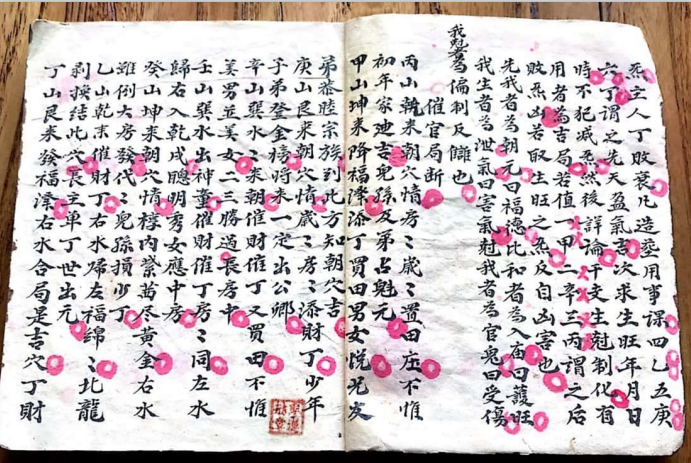 煞主人丁敗衰凡造塟用事課四乙五庚
六丁謂之先天盈氣吉次求生旺年月日
時不犯减煞然後詳論干支生尅制化有
用者為吉局若值一甲二辛三丙謂之后
敗煞凶若取生旺之煞反自凶害也
先我者為朝元曰福德比和者為入廟曰護旺
我生者為泄氣曰害氣尅我者為官鬼曰受傷
我尅者為偏制反讎也
催官局断
丙山乾来朝穴情房二歲二置田庄不惟
初年家廸吉兒孫及第占魁元
甲山坤来降福澤添丁買田男女悦兄友
弟恭睦宗族到此方知朝穴吉
庚山艮来朝穴情歲二房二添財丁少年
子弟登金榜将来一定出公卿
辛山巽水二来朝催財催丁又買田不惟
美男並美女二三勝過長房中
壬山巽水出神童催財催丁房二同左水
歸右入乾戌聰明秀女應中房
癸山坤来朝穴情檡内紫茜尽黄金右水
雖倒大房發代二兒孫損少丁
乙山乾来催財丁右水歸左福綿二北龍
剥換結此穴長主单丁世出元
丁山艮来發福澤右水合局是吉穴丁財